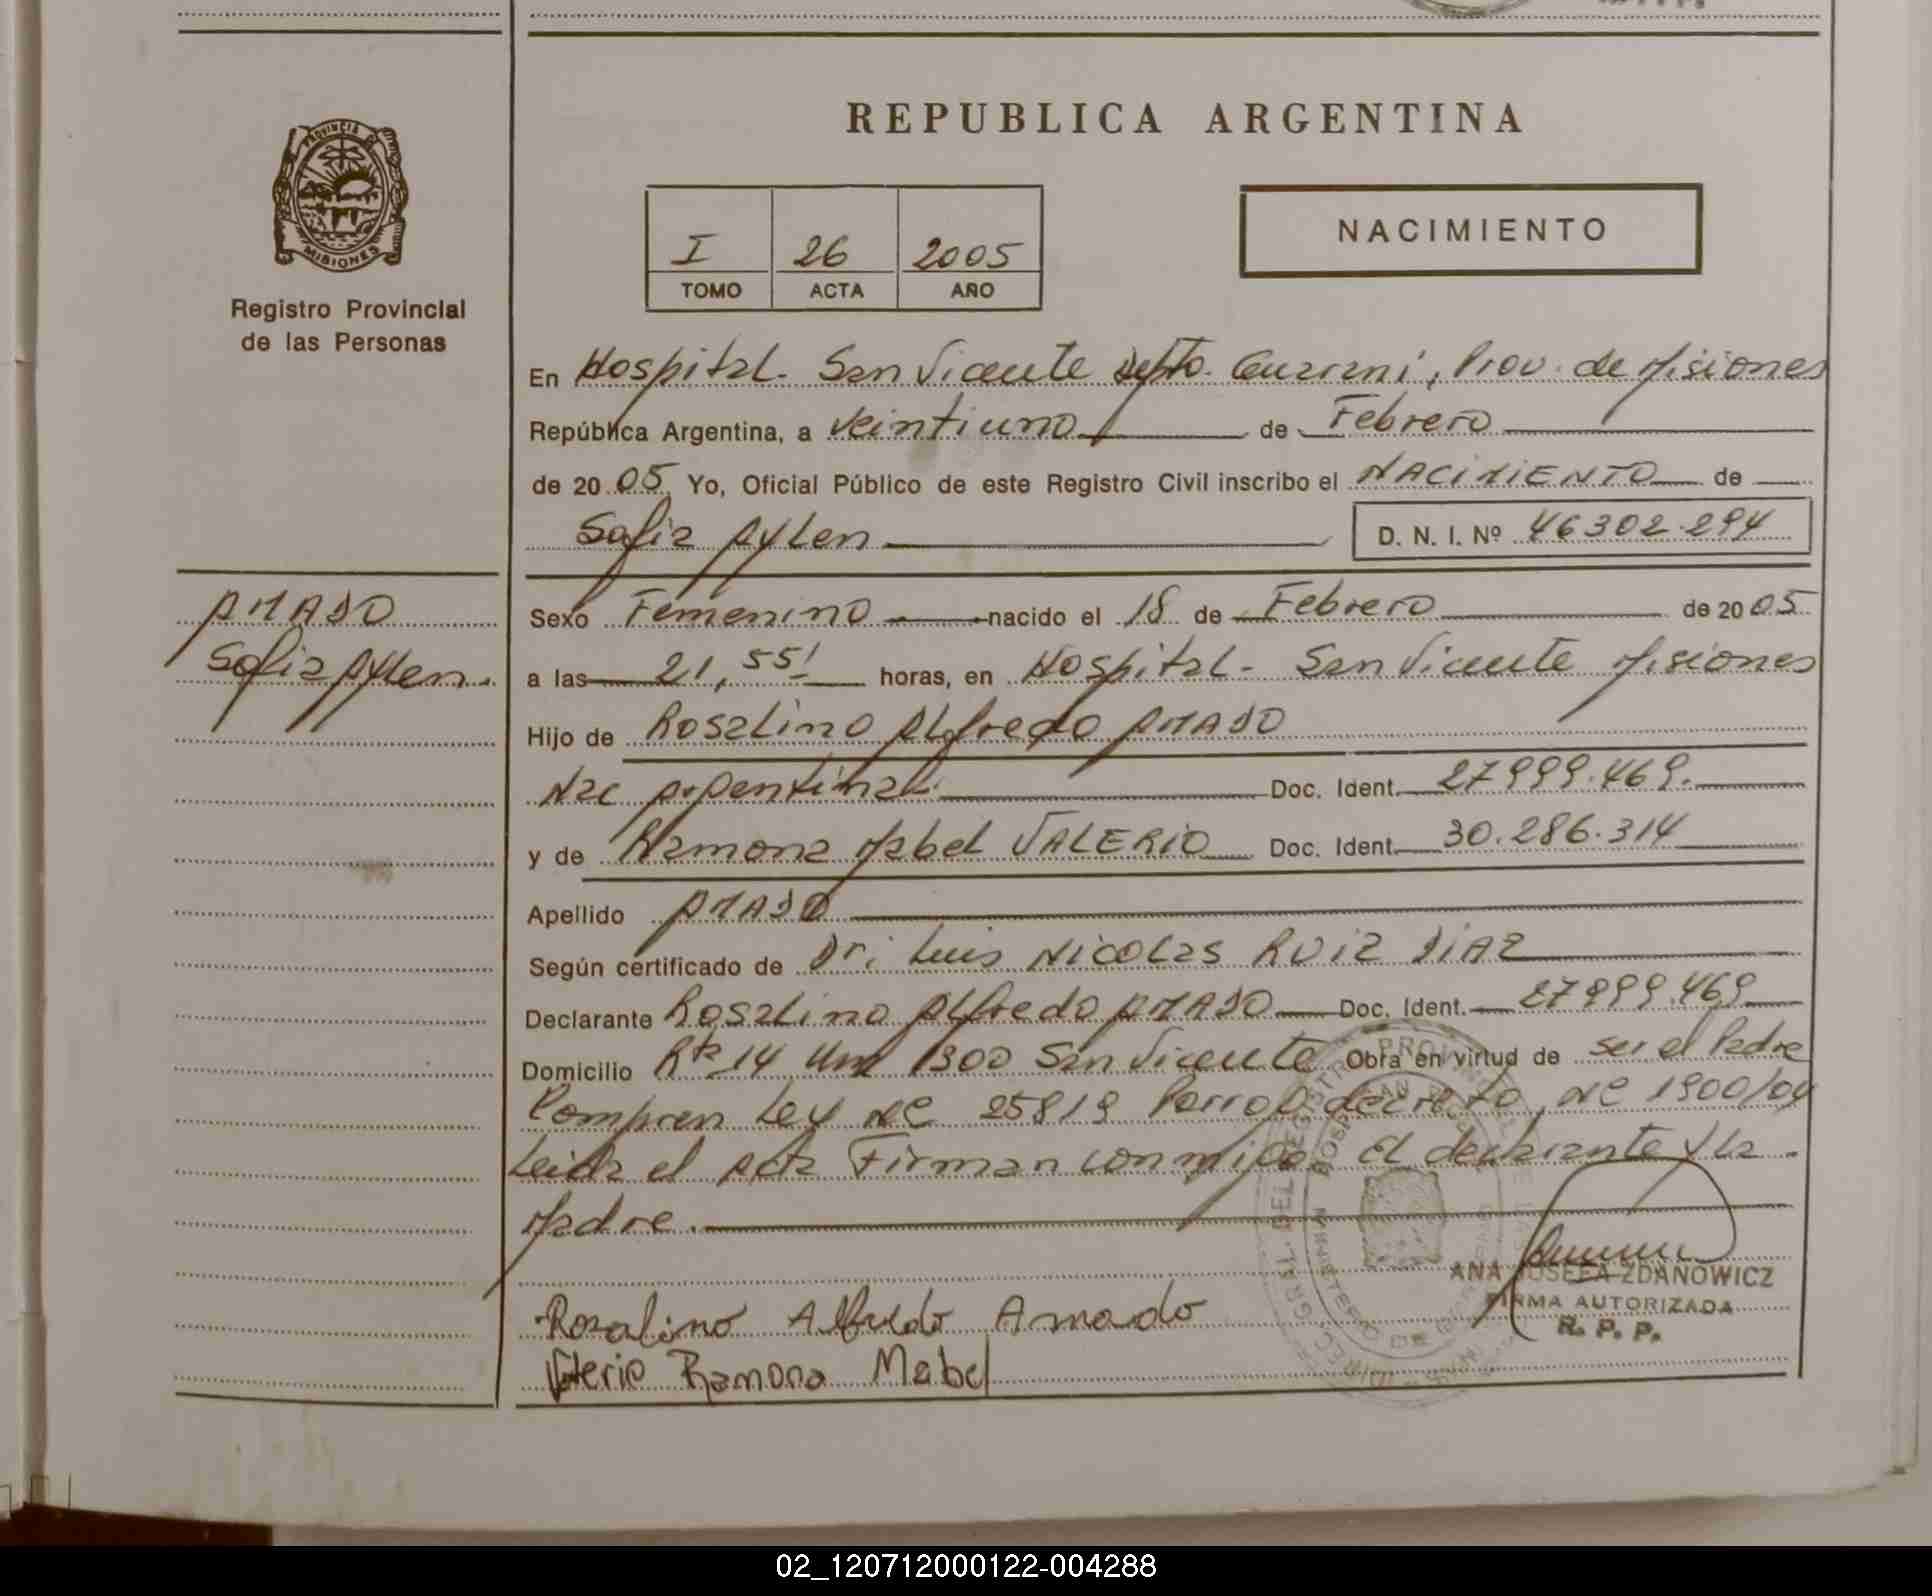 PROVINCIA
MISIONES
Registro Provincial
de las Personas
AMADO
Sofia Aylen.
REPUBLICA ARGENTINA
I 26 2005
TOMO ACTA AÑO
NACIMIENTO
En Hospital - San Vicente Depto. Guarani, Prov. de Misiones
República Argentina, a Veintiuno de Febrero
de 2005 Yo, Oficial Público de este Registro Civil inscribo el NACIMIENTO de
Sofia Aylen D. N. I. Nº 46302.294
Sexo Femenino nacido el 18 de Febrero de 2005
a las 21,55' horas, en Hospital - San Vicente Misiones
Hijo de Rosalino Alfredo AMADO
Nac Argentina Doc. Ident. 27999.469.
y de Ramona Mabel VALERIO Doc. Ident. 30.286.314
Apellido AMADO
Según certificado de Dr. Luis Nicolas RUIZ DIAZ
Declarante Rosalino Alfredo AMADO Doc. Ident. 27999.469
Domicilio Rta 14 Km 1300 San Vicente Obra en virtud de ser el Padre
Ley Nº 25819 decreto Nº 1900/04
Leida el Acta Firman conmigo El declarante y la
Madre.
ANA JOSEFA ZDANOWICZ
FIRMA AUTORIZADA
R. P. P.
Rosalino Alfredo Amado
Valerio Ramona Mabel
02_120712000122-004288